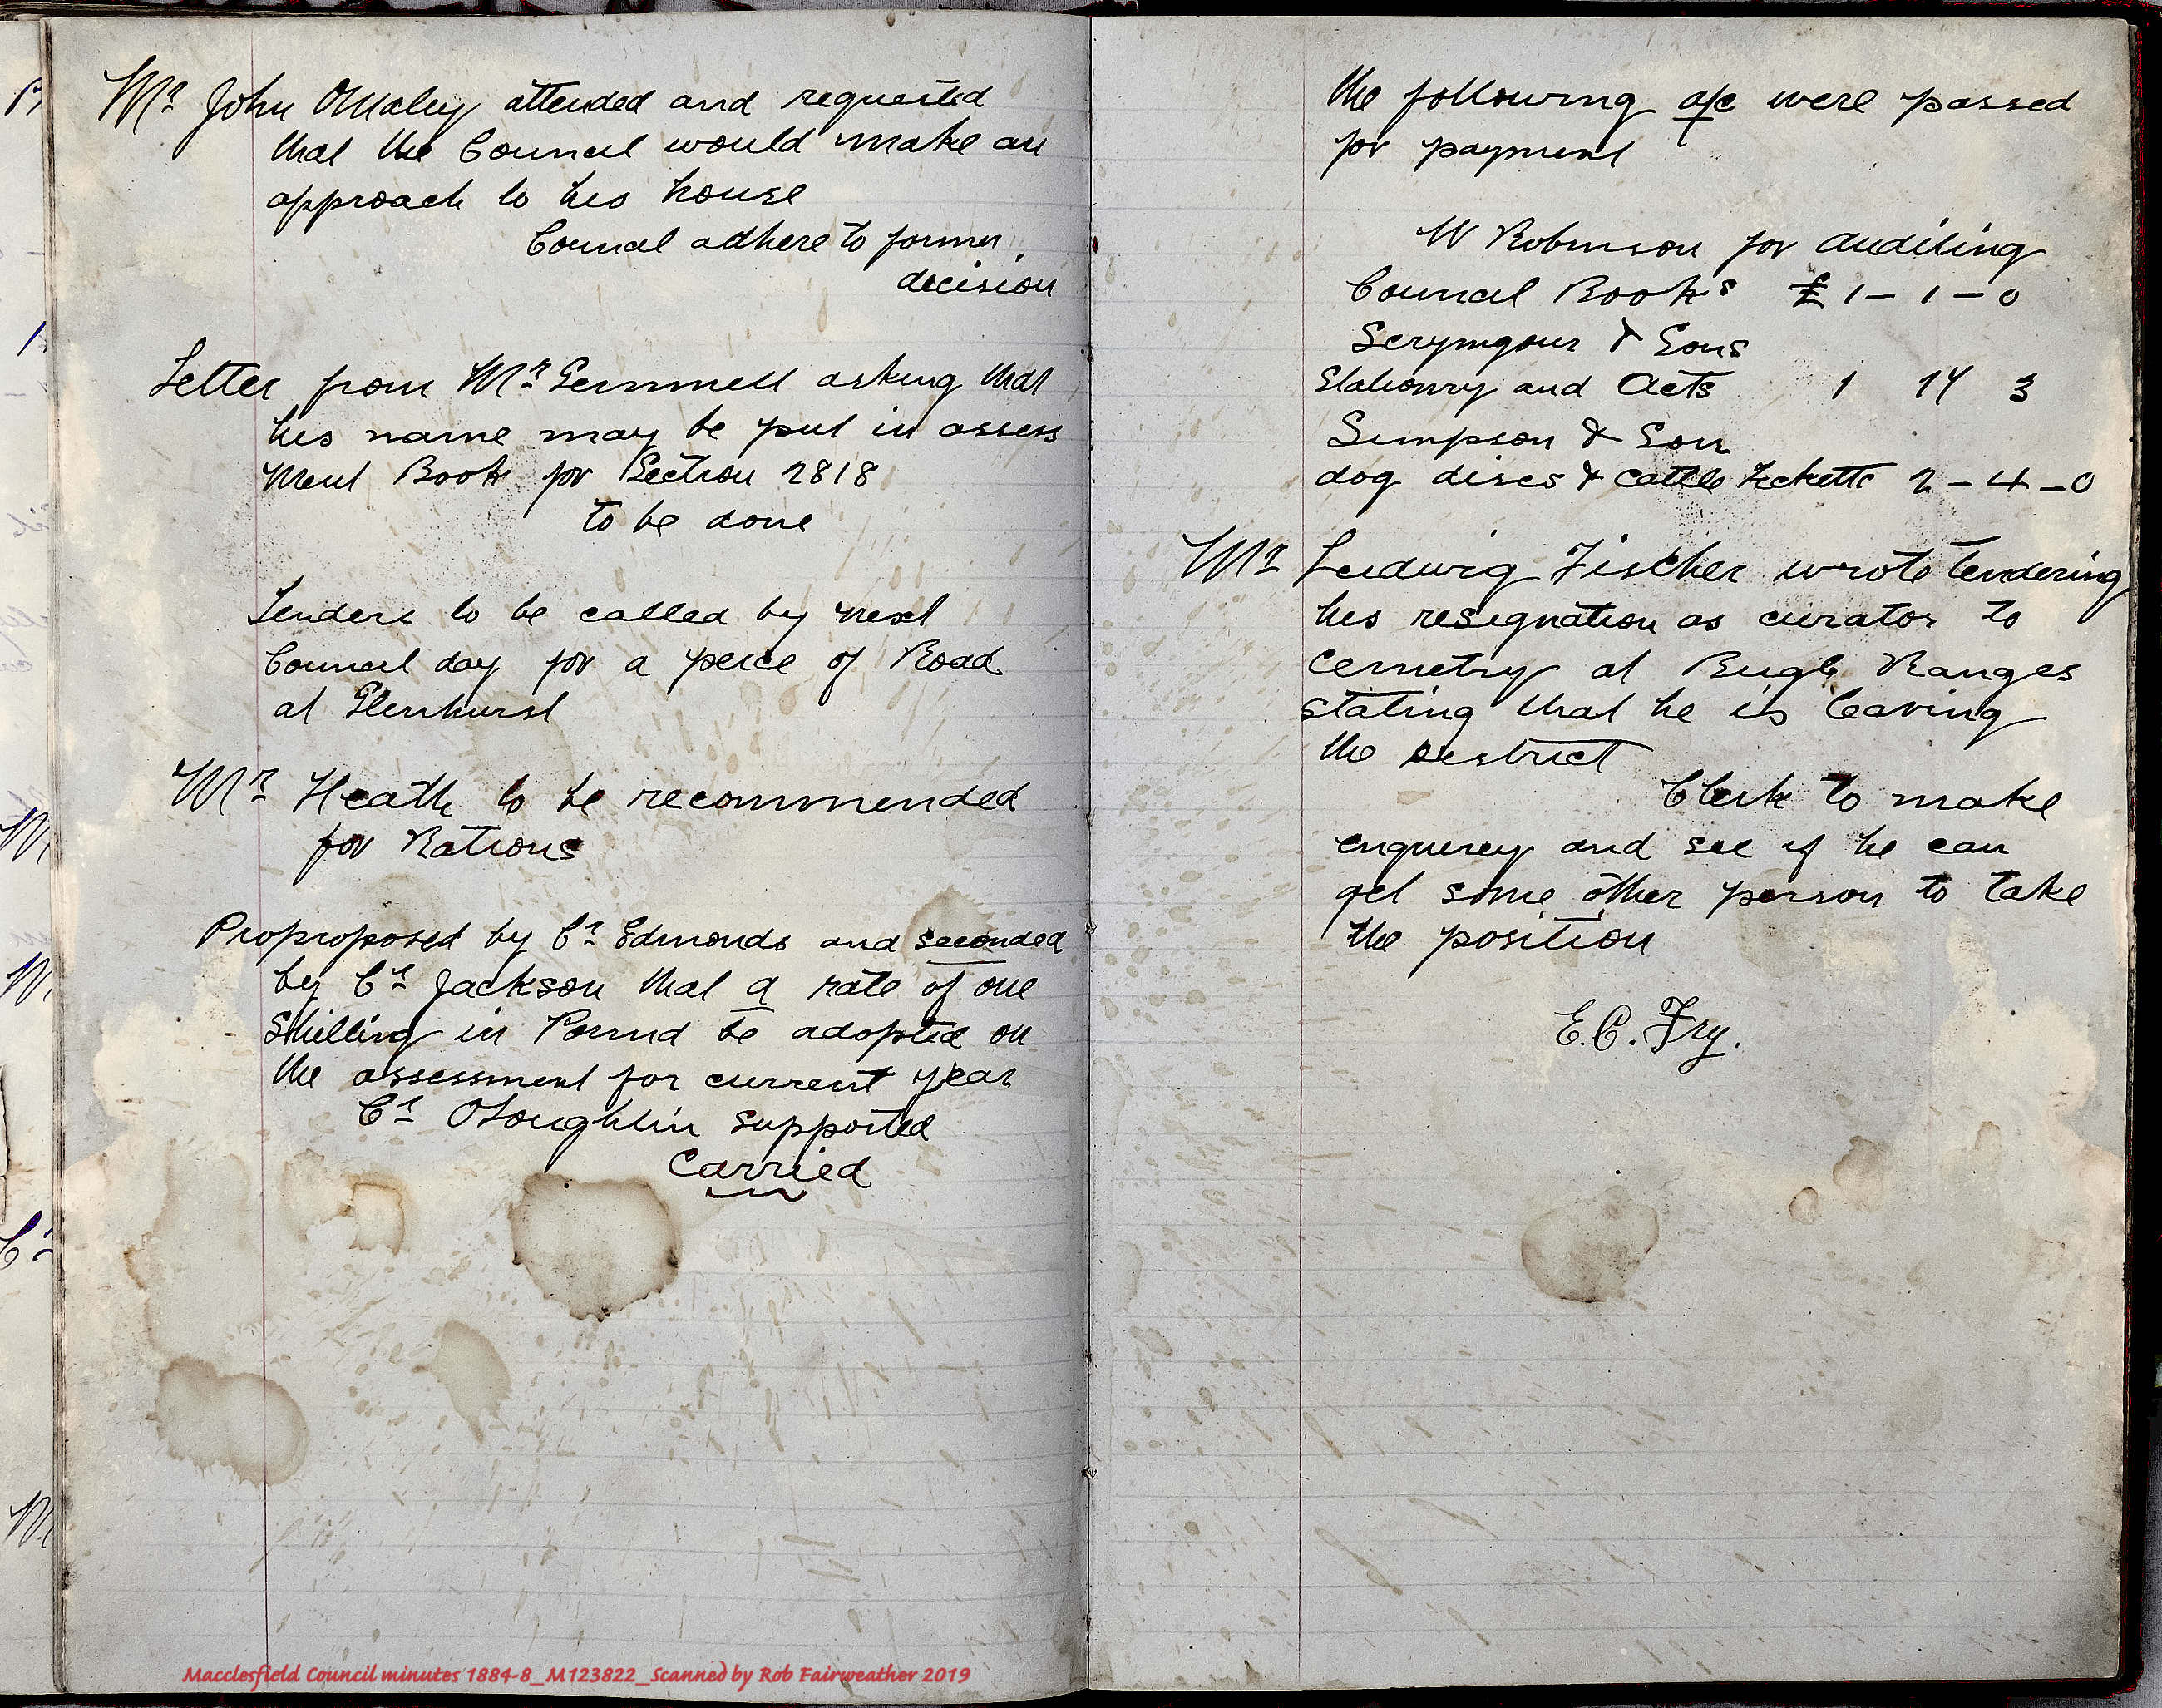 Mr John OMaley attended and requested
that the Council would make an
approach to his house
Council adhere to former
decision
Letter from Mr Gemmell asking that
his name may be put in assess
ment Book for Section 2818
to be done
Tenders to be called by next
Council day for a peice of Road
at Glenhurst
Mr Heath to be recommended
for Rations
Proproposed by Cr Edmonds and seconded
by Cr Jackson that a rate of one
Shilling in Pound be adopted on
the assessment for current year
Cr OLoughlin supported
Carried
the following a/c were passed
for payment
W Robinson for auditing
Council Books £1-1-0
Scrymgour & Sons
Stationry and Acts 1 14 3
Simpson & Son
dog discs & cattle ticketts 2-4-0
Mr Ludwig Fischer wrote tendering
his resignation as curator to
Cemetry at Bugle Ranges
stating that he is leaving
the District
Clerk to make
enquirey and see if he can
get some other person to take
the position
E.C. Fry.
Macclesfield Council minutes 1884-8_M123822_Scanned by Rob Fairweather 2019